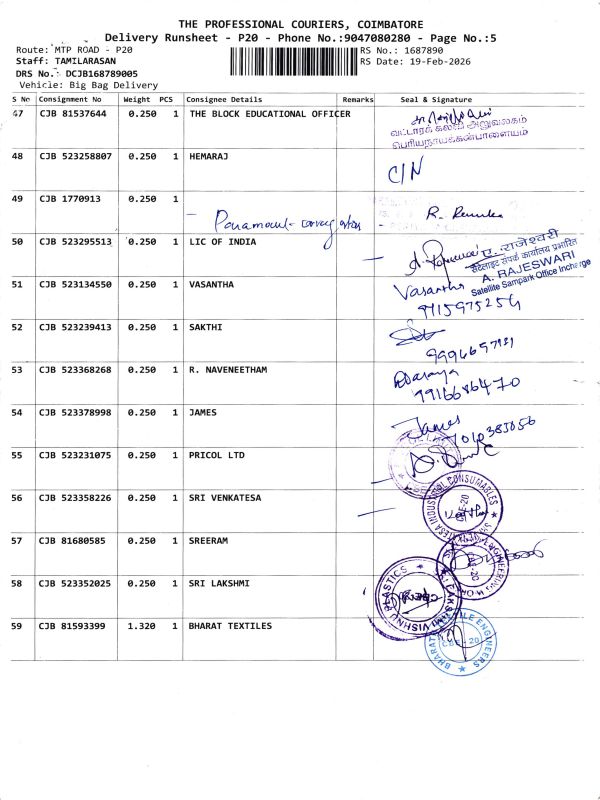 THE PROFESSIONAL COURIERS, COIMBATORE
Delivery Runsheet - P20 - Phone No.:9047080280 - Page No.:5
Route: MTP ROAD - P20
RS No.: 1687890
Staff: TAMILARASAN
RS Date: 19-Feb-2026
DRS No.: DCJB168789005
Vehicle: Big Bag Delivery
S No Consignment No Weight PCS Consignee Details Remarks Seal & Signature
47 CJB 81537644 0.250 1 THE BLOCK EDUCATIONAL OFFICER
வட்டாரக் கல்வி அலுவலகம்
பெரியநாயக்கன்பாளையம்
48 CJB 523258807 0.250 HEMARAJ C/N
49 CJB 1770913 0.250 1
Paramount
50 CJB 523295513 0.250 1 LIC OF INDIA
ஏ. ராஜேஸ்வரி
सैटेलाइट संपर्क कार्यालय प्रभारित
A. RAJESWARI
Satellite Sampark Office Incharge
51 CJB 523134550 0.250 1 VASANTHA Vasantha
9715975254
52 CJB 523239413 0.250 1 SAKTHI
53 CJB 523368268 0.250 1 R. NAVENEETHAM
7916686470
54 CJB 523378998 0.250 1 JAMES James
55 CJB 523231075 0.250 1 PRICOL LTD
56 CJB 523358226 0.250 1 SRI VENKATESA
INDUSTRIAL CONSUMABLES
CBE-20
57 CJB 81680585 0.250 1 SREERAM
ENGINEERING WORKS
CBE-20
58 CJB 523352025 0.250 1 SRI LAKSHMI
LAKSHMI VISHNU PLASTICS
59 CJB 81593399 1.320 1 BHARAT TEXTILES
BHARAT ENGINEERS
CBE-20